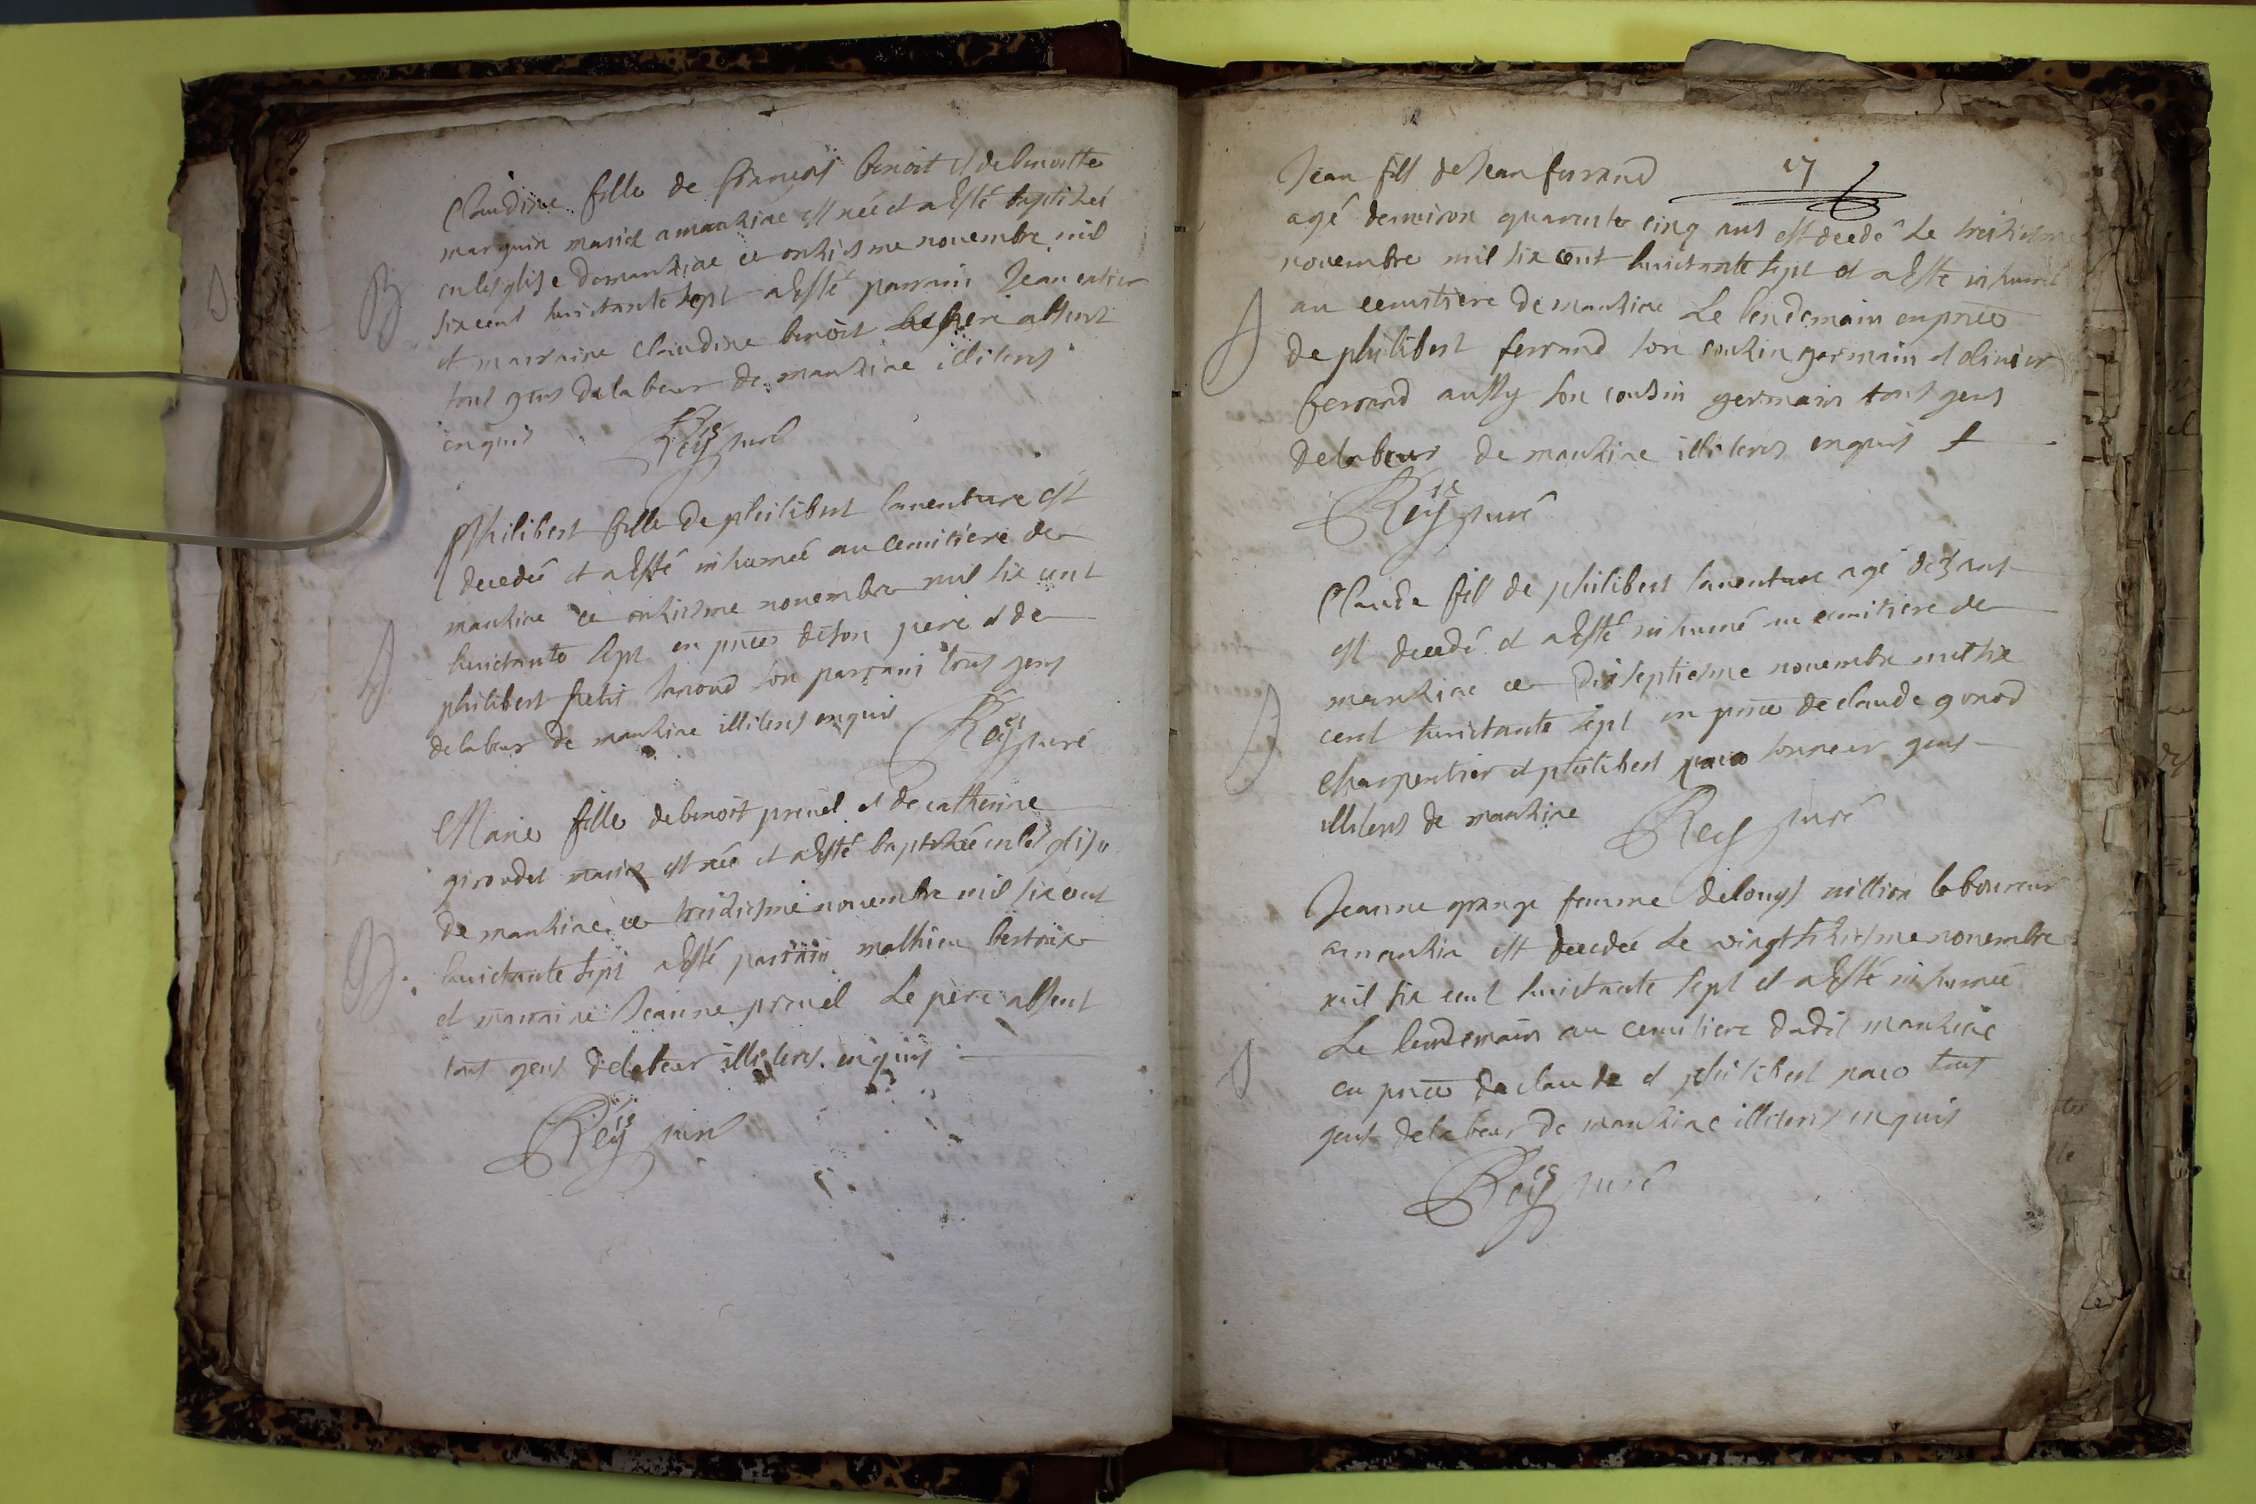 Claudine fille de françois benoit et de benoitte
marguin mariez a manziac est née et a esté baptisée
en lesglise de manziac ce onziesme novembre mil
six cent huictante sept a esté parrain Jean
et marraine Claudine benoit le pere absent
tous gens de labeur de manziac illiteres
enquis Rey curé
B
Philibert fille de philibert laventure est
decedée et a esté inhumée au cemitiere de
manziac ce onziesme novembre mil six cent
huictante sept en pñce de son pere et de
philibert petit son parrain tous gens
de labeur de manziac illiteres enquis Rey curé
Marie fille de benoit prevel et de catherine
girondet mariez est née et a esté baptizée en lesglise
de manziac ce treiziesme novembre mil six cent
B
huictante sept a esté parrain mathieu
et marraine Jeanne prevel Le pere absent
tous gens de labeur illiteres enquis
Rey curé
17
Jean fils de Jean ferrand
agé denviron quarante cinq ans est decedé le treiziesme
novembre mil six cent huictante sept et a esté inhumé
au cemitiere de manziac Le lendemain en pñce
de philibert ferrand son couzin germain et olivier
ferrand aussy son cousin germain tous gens
de labeur de manziac illiteres enquis
Rey curé
Claude fils de philibert laventure agé de 3 ans
est decedé et a esté inhumé au cemitiere de
manziac ce dixseptiesme novembre mil six
cent huictante sept en pñce de claude gonod
charpentier et philibert paco sonneur gens
illiteres de manziac Rey curé
Jeanne grange femme de louys million laboureur
a manzia est decedée Le vingt siziesme novembre
mil six cent huictante sept et a esté inhumée
Le lendemain au cemitiere dudit manziac
en pñce de claude et philibert paco tous
gens de labeur de manziac illiteres enquis
Rey curé